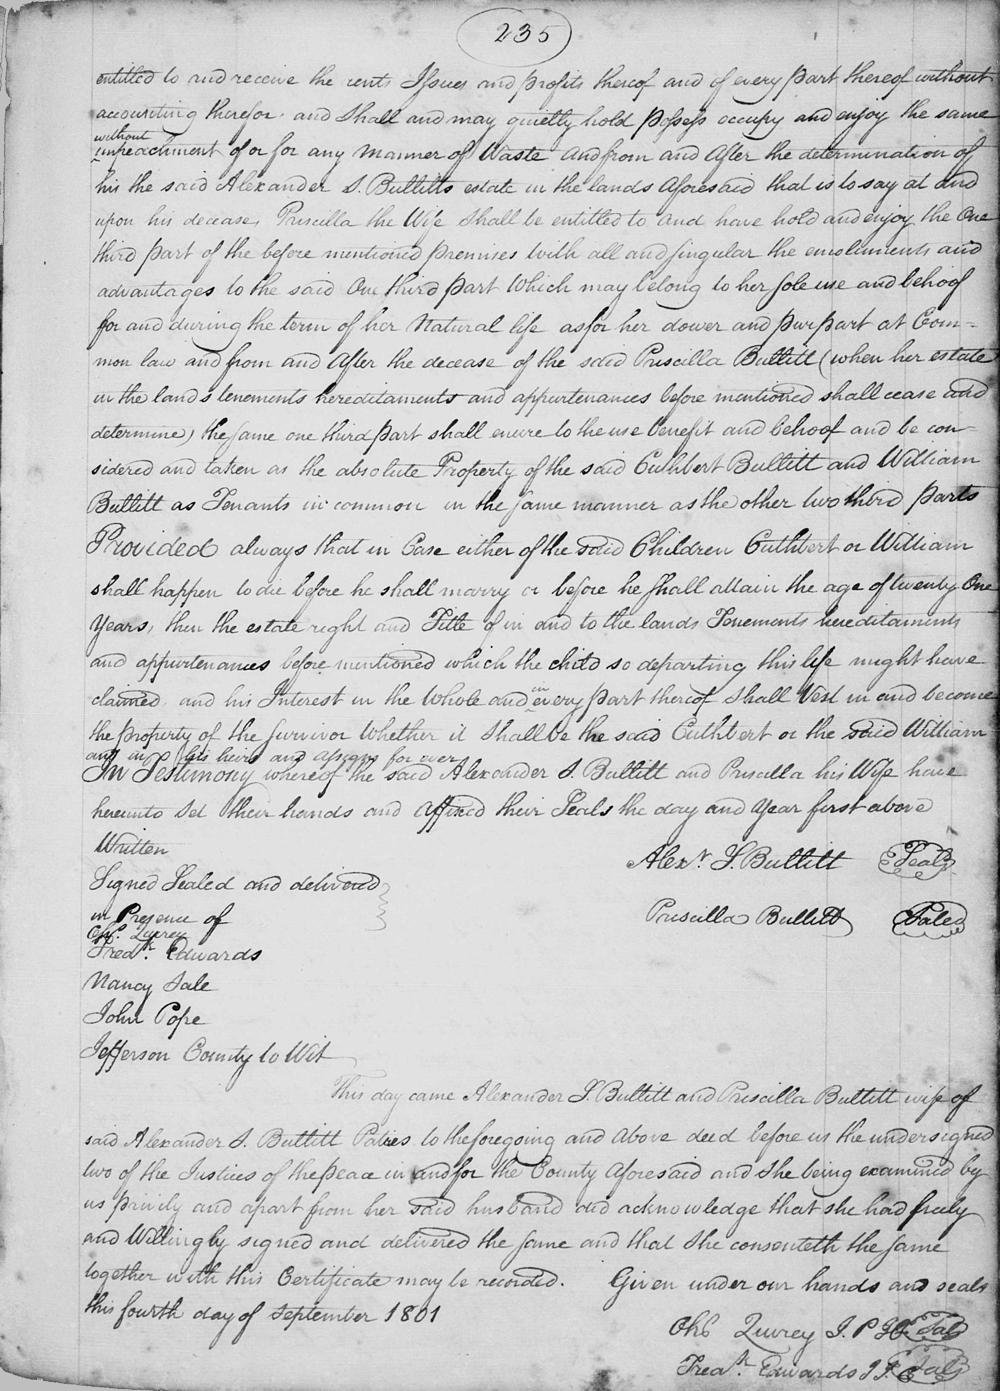 235
entitled to and receive the rents Issues and profits thereof and of every part thereof without
accounting therefor and shall and may quietly hold possess occupy and enjoy the same
without
impeachment of or for any Manner of Waste and from and After the determination of
his the said Alexander S. Bullitts estate in the lands Aforesaid that is to say at and
upon his decease, Priscilla the Wife shall be entitled to and have hold and enjoy the One
third part of the before mentioned premises with all and singular the emoluments and
advantages to the said One third part Which may belong to her sole use and behoof
for and during the term of her Natural life as for her dower and purpart at Com=
mon law and from and After the decease of the said Priscilla Bullitt (when her estate
in the lands tenements hereditaments and appurtenances before mentioned shall cease and
determine) the same one third part shall enure to the use benefit and behoof and be con=
sidered and taken as the absolute Property of the said Cuthbert Bullitt and William
Bullitt as Tenants in common in the same manner as the other two third parts
Provided always that in Case either of the said Children Cuthbert or William
shall happen to die before he shall marry or before he shall attain the age of twenty One
Years, then the estate right and Title of in and to the lands Tenements hereditaments
and appurtenances before mentioned which the child so departing this life might have
claimed and his Interest in the Whole and in every part thereof shall Vest in and become
the property of the survivor Whether it shall be the said Cuthbert or the said William
his heirs and assigns for ever
In Testimony whereof the said Alexander S. Bullitt and Priscilla his Wife have
hereunto set their hands and Affixed their Seals the day and Year first above
Written
Alexr. S. Bullitt Seal
Signed Sealed and delivered
in Presence of
Priscilla Bullitt Seal
Chs. Quirey
Fredk. Edwards
Nancy Sale
John Pope
Jefferson County to Wit
This day came Alexander S. Bullitt and Priscilla Bullitt wife of
said Alexander S. Bullitt Paties to the foregoing and above deed before us the undersigned
two of the Justices of the peace in and for the County Aforesaid and She being examined by
us privily and apart from her said husband did acknowledge that she had freely
and Willingly signed and delivered the same and that She consenteth the same
together with this Certificate may be recorded. Given under our hands and seals
this fourth day of September 1801
Chs Quirey J. P J C Seal
Fredk. Edwards J P C Seal